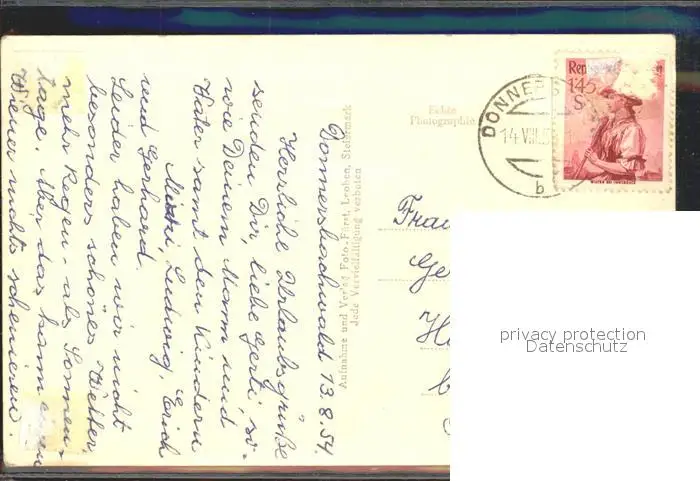 Donnersbachwald 13.8.54.
Herzliche Urlaubsgrüße
senden Dir, liebe Gerti, so-
wie Deinem Mann und
Vater samt den Kindern
Mitzi, Ludwig, Erich
und Gerhard.
Leider haben wir nicht
besonders schönes Wetter,
mehr Regen- als Sonnen-
tage. Aber das kann einen
Wiener nicht
Aufnahme und Verlag Foto-Fürst, Leoben, Steiermark
Jede Vervielfältigung verboten
Echte
Photographie
DONNERS
14.VIII.5
b
Rep
1'45
S
Frau
Ge
H
privacy protection
Datenschutz